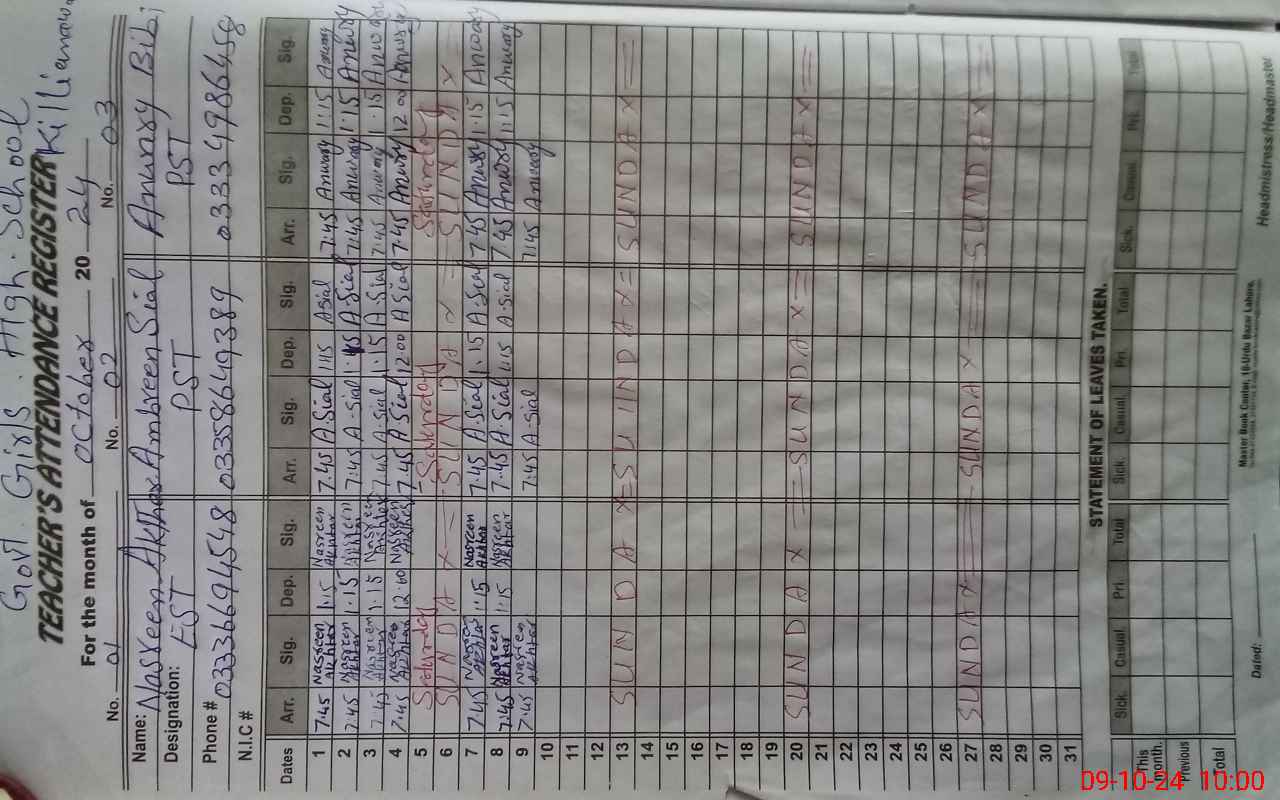 Govt. Girls. High. School
TEACHER'S ATTENDANCE REGISTER Killi
For the month of October 20 24
No. 01 No. 02 No. 03
Name: Nasreen Akhtar Ambreen Sial Anwry Bibi
Designation: EST PST PST
Phone # 03336694548 03358649389 03334986458
N.I.C #
Dates Arr. Sig. Dep. Sig. Arr. Sig. Dep. Sig. Arr. Sig. Dep. Sig.
1 7:45 Nasreen Akhtar 1:15 Nasreen Akhtar 7:45 A.Sial 1:15 A.Sial 7:45 Anwary 1:15 Anwary
2 7:45 Nasreen Akhtar 1:15 Nasreen Akhtar 7:45 A.Sial 1:15 A.Sial 7:45 Anwary 1:15 Anwry
3 7:45 Nasreen Akhtar 1:15 Nasreen Akhtar 7:45 A.Sial 1:15 A.Sial 7:45 Anwary 1:15 Anwary
4 7:45 Nasreen Akhtar 12:00 Nasreen Akhtar 7:45 A Sial 12:00 A Sial 7:45 Anwry 12:00 Anwry
5 Saturday Saturday Saturday
6 SUNDAY SUNDAY SUNDAY
7 7:45 Nasreen Akhtar 1:15 Nasreen Akhtar 7:45 A.Sial 1:15 A.Sial 7:45 Anwry 1:15 Anwary
8 7:45 Nasreen Akhtar 1:15 Nasreen Akhtar 7:45 A.Sial 1:15 A.Sial 7:45 Anwry 1:15 Anwary
9 7:45 Nasreen Akhtar 7:45 A.Sial 7:45 Anwary
10
11
12
13 SUNDAY SUNDAY SUNDAY
14
15
16
17
18
19
20 SUNDAY SUNDAY SUNDAY
21
22
23
24
25
26
27 SUNDAY SUNDAY SUNDAY
28
29
30
31
STATEMENT OF LEAVES TAKEN.
Sick. Casual. Pri Total Sick. Casual. Pri. Total Sick. Casual. Pri. Total
This month.
Previous
Total
Master Book Center, 10-Urdu Bazar Lahore.
Dated: Headmistress/Headmaster
09-10-24 10:00